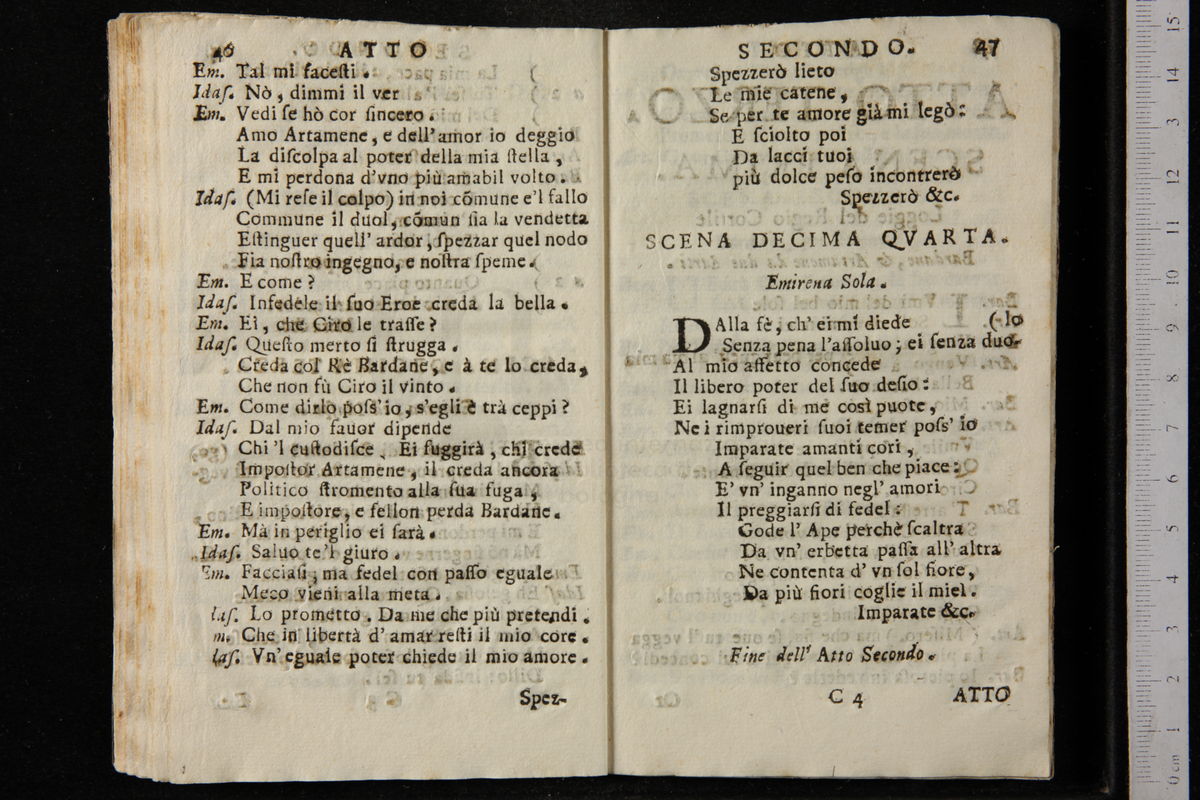 46 ATTO
Em. Tal mi facesti.
Idas. Nò, dimmi il ver
Em. Vedi se hò cor sincero.
Amo Artamene, e dell'amor io deggio
La discolpa al poter della mia stella,
E mi perdona d'vno più amabil volto.
Idas. (Mi rese il colpo) in noi cõmune e'l fallo
Commune il duol, cõmun sia la vendetta
Estinguer quell' ardor, spezzar quel nodo
Fia nostro ingegno, e nostra speme.
Em. E come?
Idas. Infedele il suo Eroe creda la bella.
Em. Ei, che Ciro le trasse?
Idas. Questo merto si strugga.
Creda col Rè Bardane, e à te lo creda,
Che non fù Ciro il vinto.
Em. Come dirlo poss'io, s'egli è trà ceppi?
Idas. Dal mio fauor dipende
Chi 'l custodisce. Ei fuggirà, chi crede
Impostor Artamene, il creda ancora
Politico stromento alla sua fuga,
E impostore, e fellon perda Bardane.
Em. Mà in periglio ei sarà.
Idas. Saluo te'l giuro.
Em. Facciasi; ma fedel con passo eguale
Meco vieni alla meta.
Idas. Lo prometto. Da me che più pretendi.
m. Che in libertà d' amar resti il mio core.
das. Vn'eguale poter chiede il mio amore.
Spez-
SECONDO. 47
Spezzerò lieto
Le mie catene,
Se per te amore già mi legò:
E sciolto poi
Da lacci tuoi
più dolce peso incontrerò
Spezzerò &c.
SCENA DECIMA QVARTA.
Emirena Sola.
DAlla fè, ch' ei mi diede (lo
Senza pena l'assoluo; ei senza duo-
Al mio affetto concede
Il libero poter del suo desio:
Ei lagnarsi di me così puote,
Ne i rimproueri suoi temer poss' io
Imparate amanti cori,
A seguir quel ben che piace:
E' vn' inganno negl' amori
Il preggiarsi di fedel:
Gode l' Ape perchè scaltra
Da vn' erbetta passa all' altra
Ne contenta d' vn sol fiore,
Da più fiori coglie il miel.
Imparate &c.
Fine dell' Atto Secondo.
C 4 ATTO